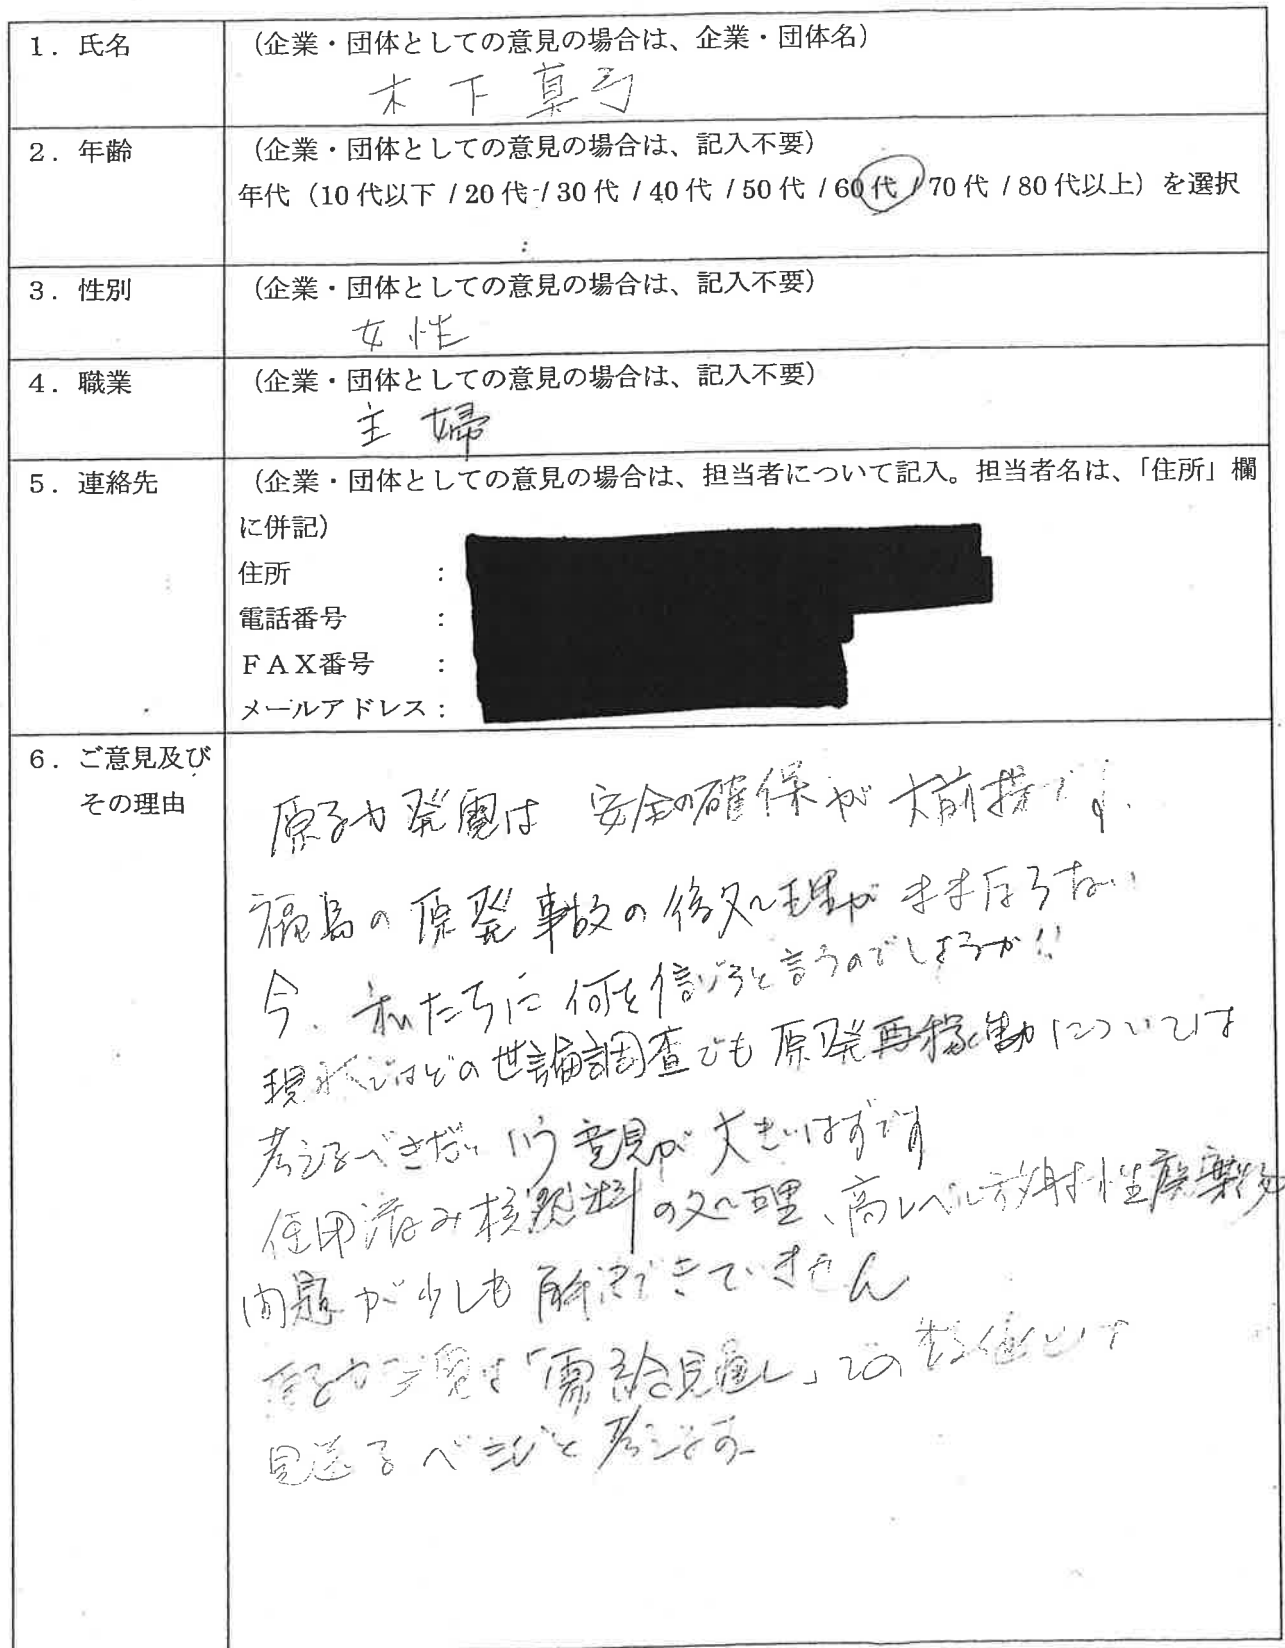 1．氏名
（企業・団体としての意見の場合は、企業・団体名）
木下真弓
2．年齢
（企業・団体としての意見の場合は、記入不要）
年代（10代以下 / 20代 / 30代 / 40代 / 50代 / 60代 / 70代 / 80代以上）を選択
3．性別
（企業・団体としての意見の場合は、記入不要）
女性
4．職業
（企業・団体としての意見の場合は、記入不要）
主婦
5．連絡先
（企業・団体としての意見の場合は、担当者について記入。担当者名は、「住所」欄
に併記）
住所　：
電話番号　：
ＦＡＸ番号　：
メールアドレス：
6．ご意見及び
その理由
原子力発電は 安全の確保が大前提です.
福島の原発事故の後処理がままならない
今、私たちに何を信じろと言うのでしょうか!!
現状ではどの世論調査でも原発再稼働については
考えるべきだという意見が大きいはずです
使用済み核燃料の処理、高レベル放射性廃棄物
問題が少しも解決できていません
原子力発電は「需給見通し」での
見送るべきだと考えます